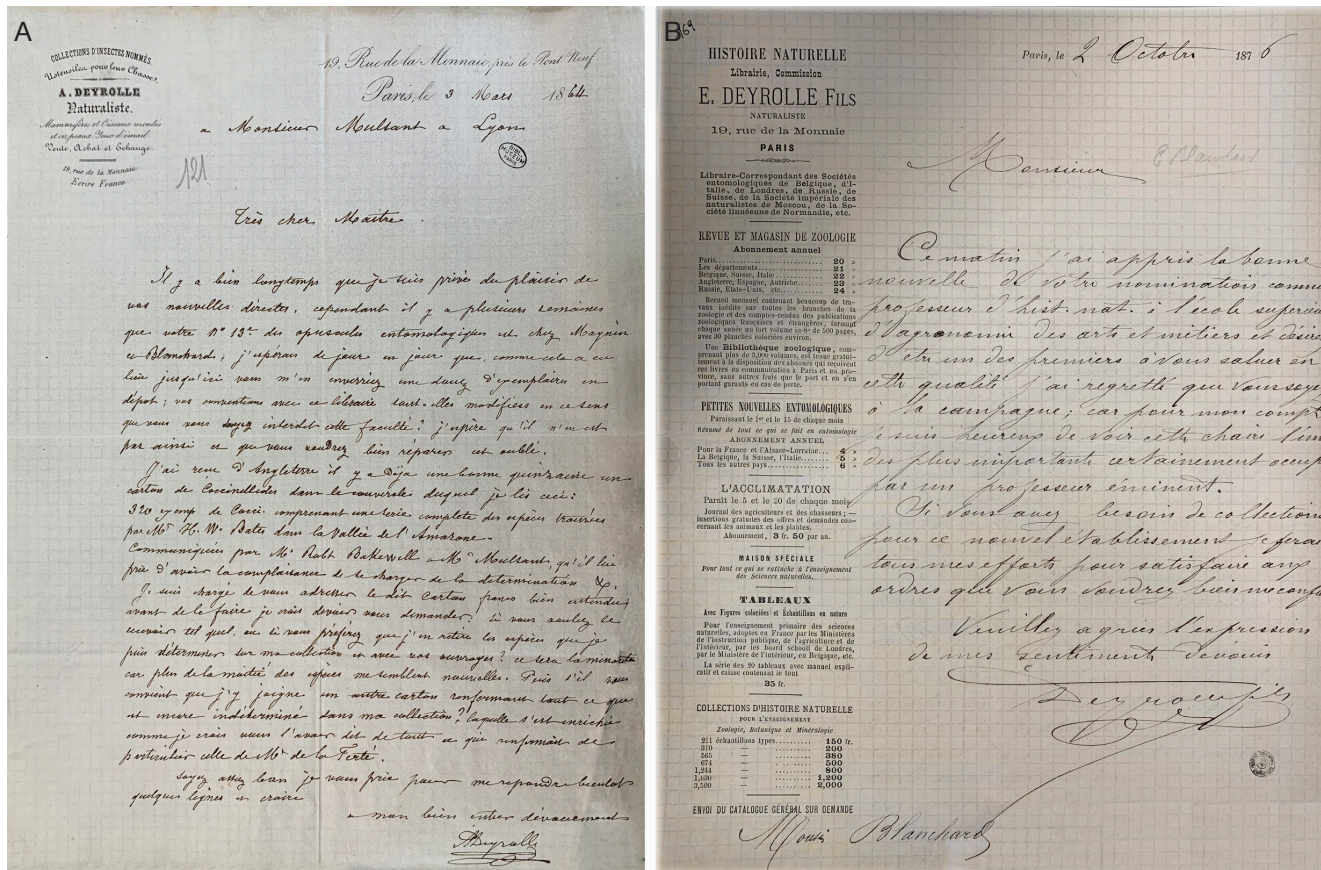 A
COLLECTIONS D'INSECTES NOMMÉS.
Ustensiles pour leur Chasse,
A. DEYROLLE
Naturaliste.
Mammifères et Oiseaux montés
et en peaux. Yeux d'émail
Vente, Achat et Echange.
19. rue de la Monnaie
Ecrire Franco
19, Rue de la Monnaie, près le Pont Neuf
Paris, le 3 Mars 1864
a Monsieur Mulsant a Lyon
BIBL. MUSEUM PARIS
121
Très cher Maitre.
Il y a bien longtemps que je suis privé du plaisir de
vos nouvelles directes, cependant il y a plusieurs semaines
que votre n° 13 des opuscules entomologiques est chez Magnin
et Blanchard, j'espérais de jour en jour que, comme cela a eu
lieu jusqu'ici vous m'en enverriez une douz d'exemplaires en
dépot; vos conventions avec ce libraire sont-elles modifiées en ce sens
que vous vous soyez interdit cette faculté? j'espire qu'il n'en est
pas ainsi et que vous voudrez bien réparer cet oubli.
J'ai reçu d'Angleterre il y a Déja une bonne quinzaine un
carton de Coccinellides dans le couvercle duquel je lis ceci:
320 exemp de Cocci. comprenant une serie complete des espèces trouvées
par Mr H. W. Bates dans la Vallée de l'Amazone.
Communiquées par Mr Robt Bakewell a Mr Mulsant, qu'il lui
prie d'avoir la complaisance de se charger de la determination &.
Je suis chargé de vous adresser le dit Carton franco bien entendu
avant de le faire je crois devoir vous demander, si vous voulez le
recevoir tel quel, ou si vous préférez que j'en retire les espèces que je
puis déterminer sur ma collection et avec vos ouvrages? ce sera la minorité
car plus de la moitié des espèces me semblent nouvelles. Puis s'il vous
convient que j'y joigne un autre carton renfermant tout ce que
est encore indéterminé dans ma collection? laquelle s'est enrichie
comme je crois vous l'avoir dit de tout ce que renfermait de
particulier celle de Mr de la Ferté.
Soyez assez bon je vous prie pour me repondre bientot
quelques lignes et croire
a mon bien entier dévouement
ADeyrolle
B
169
HISTOIRE NATURELLE
Librairie, Commission
E. DEYROLLE FILS
NATURALISTE
19, rue de la Monnaie
PARIS
Libraire-Correspondant des Sociétés
entomologiques de Belgique, d'I-
talie, de Londres, de Russie, de
Suisse, de la Société impériale des
naturalistes de Moscou, de la So-
ciété linnéenne de Normandie, etc.
REVUE ET MAGASIN DE ZOOLOGIE
Abonnement annuel
Paris............ 20 »
Les départements............ 21 »
Belgique, Suisse, Italie............ 22 »
Angleterre, Espagne, Autriche............ 23 »
Russie, Etats-Unis, etc............ 24 »
Recueil mensuel contenant beaucoup de tra-
vaux inédits sur toutes les branches de la
zoologie et des comptes-rendus des publications
zoologiques françaises et étrangères, formant
chaque année un fort volume in-8° de 500 pages,
avec 30 planches coloriées environ.
Une Bibliothèque zoologique, com-
prenant plus de 3,000 volumes, est tenue gratui-
tement à la disposition des abonnés qui reçoivent
ces livres en communication à Paris et en pro-
vince, sans autres frais que le port et en s'en
portant garants en cas de perte.
PETITES NOUVELLES ENTOMOLOGIQUES
Paraissant le 1er et le 15 de chaque mois
Résumé de tout ce qui se fait en entomologie
ABONNEMENT ANNUEL
Pour la France et l'Alsace-Lorraine... 4 »
La Belgique, la Suisse, l'Italie...... 5 »
Tous les autres pays............ 6 »
L'ACCLIMATATION
Parait le 5 et le 20 de chaque mois
Journal des agriculteurs et des chasseurs; —
insertions gratuites des offres et demandes con-
cernant les animaux et les plantes.
Abonnement, 3 fr. 50 par an.
MAISON SPÉCIALE
Pour tout ce qui se rattache à l'enseignement
des Sciences naturelles.
TABLEAUX
Avec Figures coloriées et Échantillons en nature
Pour l'enseignement primaire des sciences
naturelles, adoptés en France par les Ministères
de l'instruction publique, de l'agriculture et de
l'intérieur, par les board school de Londres,
par le Ministère de l'intérieur, en Belgique, etc.
La série des 20 tableaux avec manuel expli-
catif et caisse contenant le tout
35 fr.
COLLECTIONS D'HISTOIRE NATURELLE
POUR L'ENSEIGNEMENT
Zoologie, Botanique et Minéralogie
211 échantillons types.......... 150 fr.
310 — .......... 200
565 — .......... 380
674 — .......... 500
1,244 — .......... 800
1,630 — .......... 1,200
3,500 — .......... 2,000
ENVOI DU CATALOGUE GÉNÉRAL SUR DEMANDE
Paris, le 2 Octobre 1876
Monsieur
Ce matin j'ai appris la bonne
nouvelle de votre nomination comme
professeur d'hist. nat. à l'école superieu
d'agronomie des arts et métiers et désire
d'être un des premiers à vous saluer en
cette qualité j'ai regretté que vous soye
à la campagne; car pour mon compte
je suis heureux de voir cette chaire l'une
des plus importante certainement occup
par un professeur éminent.
Si vous avez besoin de collection
pour ce nouvel établissement je ferai
tous mes efforts pour satisfaire aux
ordres que vous voudrez bien me confi
Veuillez agréer l'expression
de mes sentiments dévoués
Deyrolle fils
Blanchard